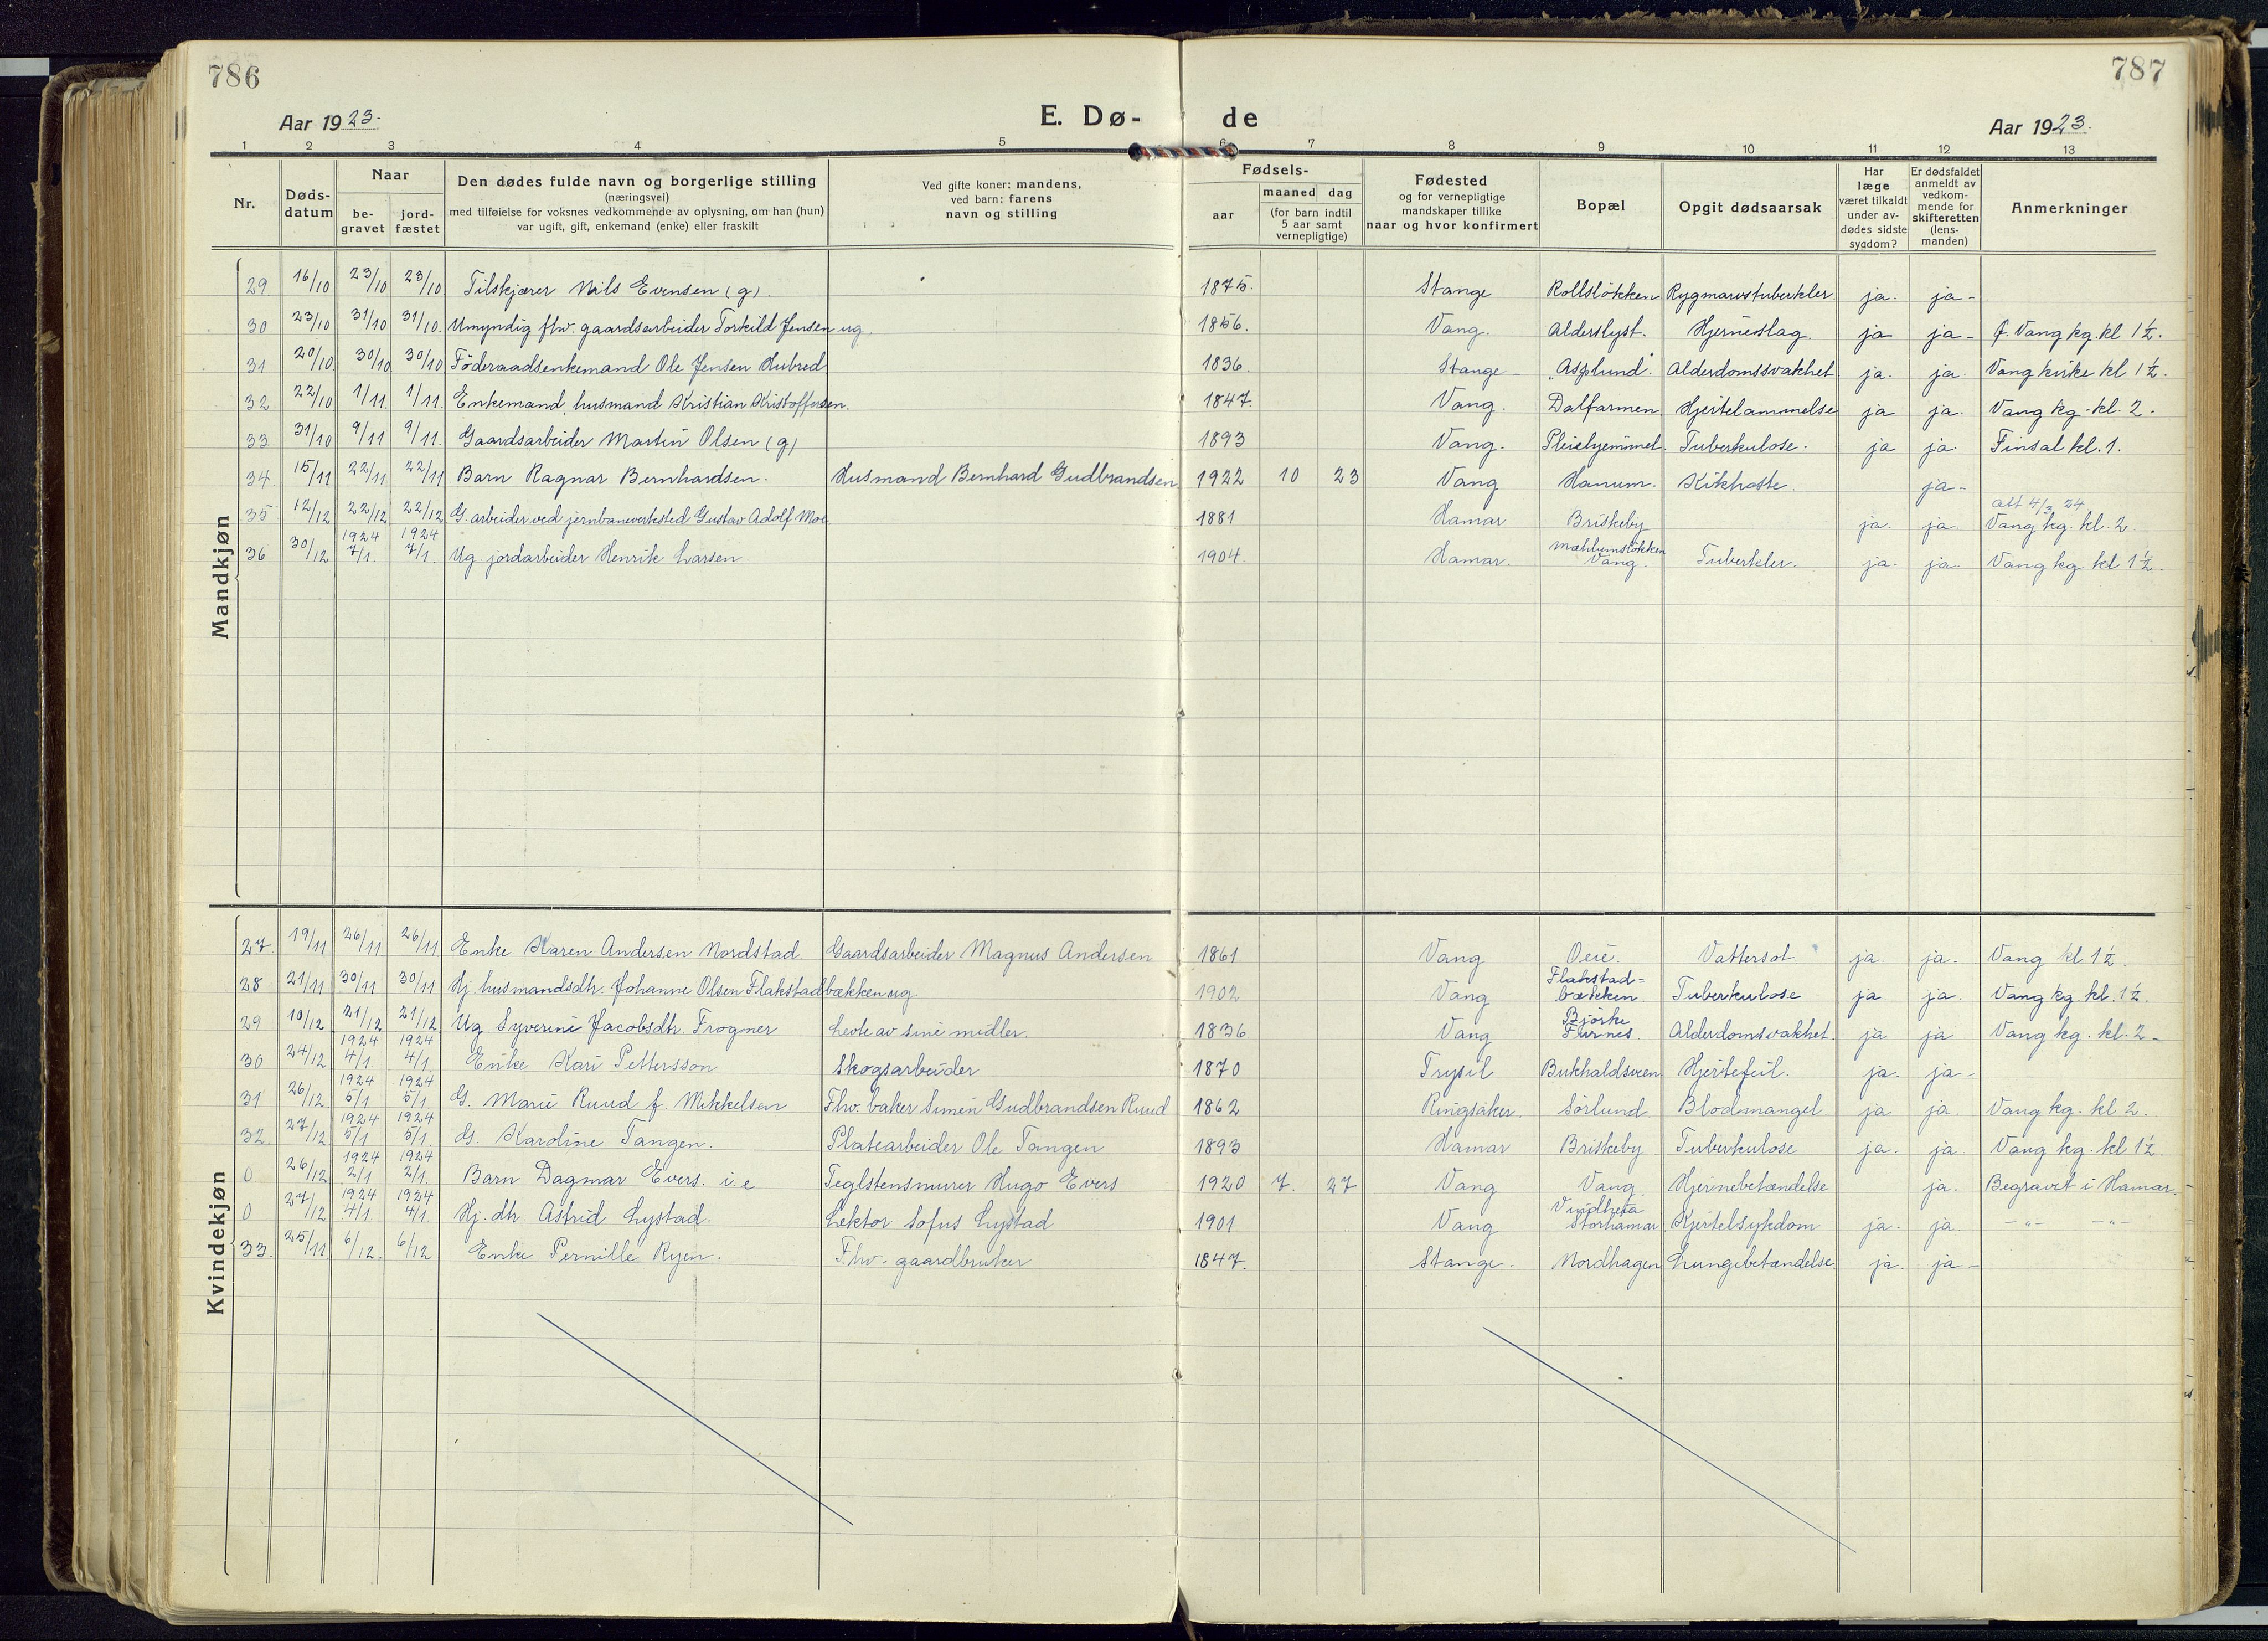 786
787
Aar 1923.
E. Dø-
de
Aar 1923.
1 2 3 4 5 6 7 8 9 10 11 12 13
Nr.
Døds-
datum
Naar
be-
gravet
jord-
fæstet
Den dødes fulde navn og borgerlige stilling
(næringsvei)
med tilføielse for voksnes vedkommende av oplysning, om han (hun)
var ugift, gift, enkemand (enke) eller fraskilt
Ved gifte koner: mandens,
ved barn: farens
navn og stilling
Fødsels-
aar
maaned dag
(for barn indtil
5 aar samt
vernepligtige)
Fødested
og for vernepligtige
mandskaper tillike
naar og hvor konfirmert
Bopæl
Opgit dødsaarsak
Har
læge
været tilkaldt
under av-
dødes sidste
sygdom?
Er dødsfaldet
anmeldt av
vedkom-
mende for
skifteretten
(lens-
manden)
Anmerkninger
Mandkjøn
29 16/10 23/10 23/10 Tilskjærer Nils Evensen (g). 1875. Stange Kollsløkken Rygmarvstuberkler. ja. ja-
30 23/10 31/10 31/10. Umyndig fhv. gaardsarbeider Torkild Jensen ug. 1856. Vang. Alderslyst. Hjerneslag. ja ja- f. Vang kg. kl 1½.
31 20/10 30/10 30/10 Föderaadsenkemand Ole Jensen Hubred 1836. Stange- Asplund. Alderdomssvakhet ja. ja. Vang kirke kl 1½.
32 22/10 1/11 1/11. Enkemand, husmand Kristian Kristoffersen. 1847. Vang. Dalfarmen Hjertelammelse ja ja. Vang kg. kl. 2.
33 31/10 9/11 9/11. Gaardsarbeider Martin Olsen (g) 1893 Vang. Pleiehjemmet Tuberkulose. ja ja. Finsal kl. 1.
34 15/11 22/11 22/11 Barn Ragnar Bernhardsen. Husmand Bernhard Gudbrandsen 1922 10 23 Vang Hanum. Kikhoste. ja-
att 4/3 24
35 12/12 22/12 22/12 G. arbeider ved jernbaneverksted Gustav Adolf Moe 1881 Hamar Briskeby ja. ja. Vang kg. kl. 2.
1924 1924 Mæhlumsløkken
36 30/12 7/1. 7/1. Ug. jordarbeider Henrik Larsen. 1904. Hamar. Vang. Tuberkler. ja. ja. Vang kg kl 1½.
Kvindekjøn
27 19/11 26/11 26/11 Enke Karen Andersen Nordstad Gaardsarbeider Magnus Andersen 1861 Vang Oeie. Vattersot ja. ja. Vang kl 1½.
Flakstad=
28 21/11 30/11 30/11 Hj. husmandsdtr. Johanne Olsen Flakstadbækken ug 1902 Vang bækken Tuberkulose ja ja. Vang kg. kl. 1½.
Bjørke
29 10/12 21/12 21/12 Ug. Syverine Jacobsdtr. Frogner Levte av sine midler. 1836 Vang Furnes. Alderdomsvakhet. ja ja Vang kg. kl. 2-
1924 1924
30 24/12 4/1. 4/1. Enke Kari Pettersson Skogsarbeider 1870 Trysil Bukhaldsveen Hjertefeil. ja. ja-
1924 1924
31 26/12 5/1 5/1. G. Marie Ruud f. Mikkelsen Fhv. baker Simen Gudbrandsen Ruud 1862 Ringsaker. Sörlund. Blodmangel ja ja. Vang kg. kl 2.
1924 1924
32. 27/12 5/1 5/1. G. Karoline Tangen. Platearbeider Ole Tangen 1893 Hamar Briskeby Tuberkulose ja. ja. Vang kg. kl 1½
1924 1924
0 26/12 2/1 2/1. Barn Dagmar Evers. i.e Teglstensmurer Hugo Evers 1920 7. 27 Vang Vang Hjernebetændelse ja. Begravet i Hamar.
1924 1924
0 27/12 4/1. 4/1. Hj. dtr. Astrid Lystad. Lektor Sofus Lystad 1901 Vang Storhamar Kjertelsykdom ja. ja. -"- -"-
33. 25/11 6/12. 6/12 Enke Pernille Ryen. Fhv. gaardbruker 1847. Stange. Nordhagen Lungebetændelse ja. ja-